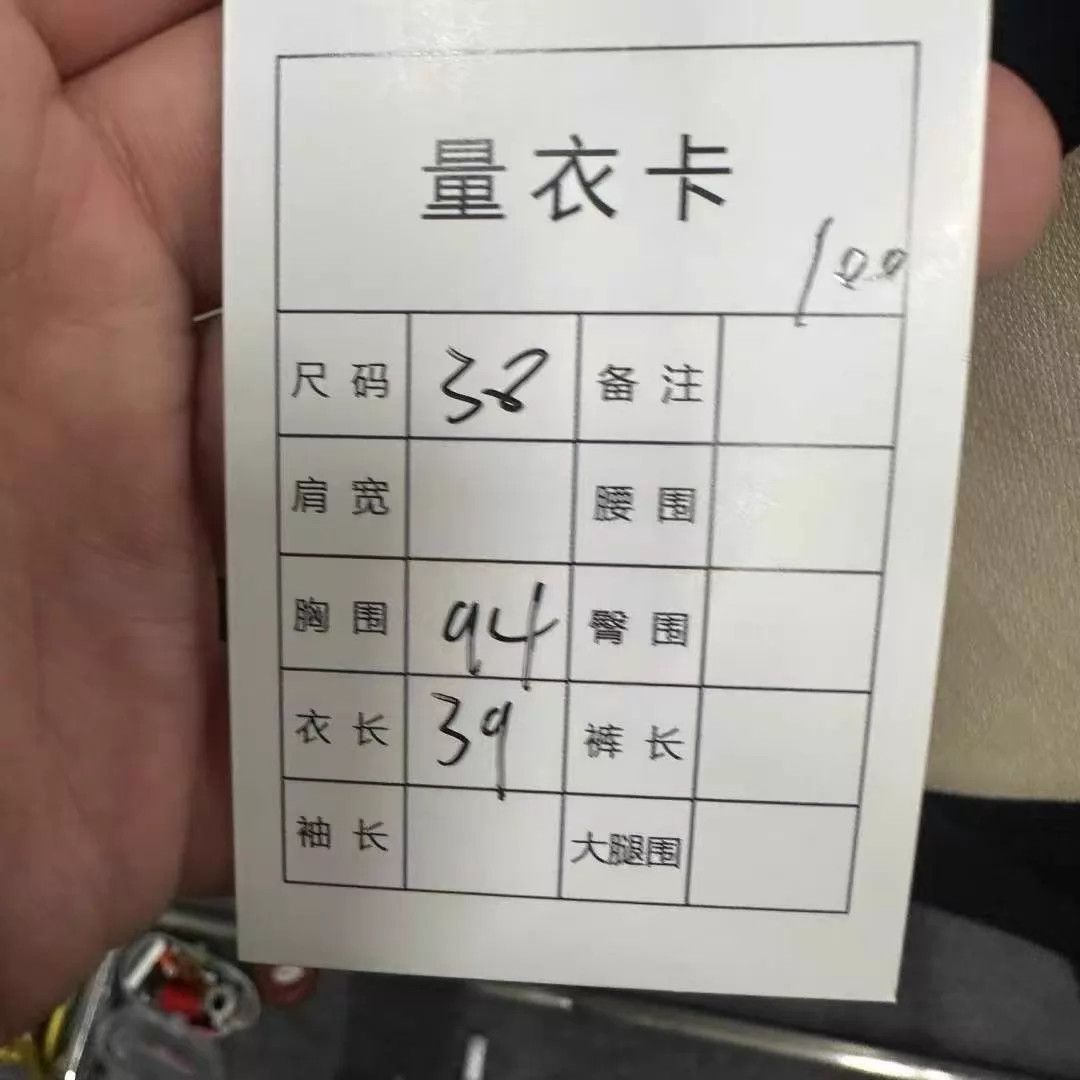 量衣卡
100
尺码 38 备注
肩宽 腰围
胸围 94 臀围
衣长 39 裤长
袖长 大腿围